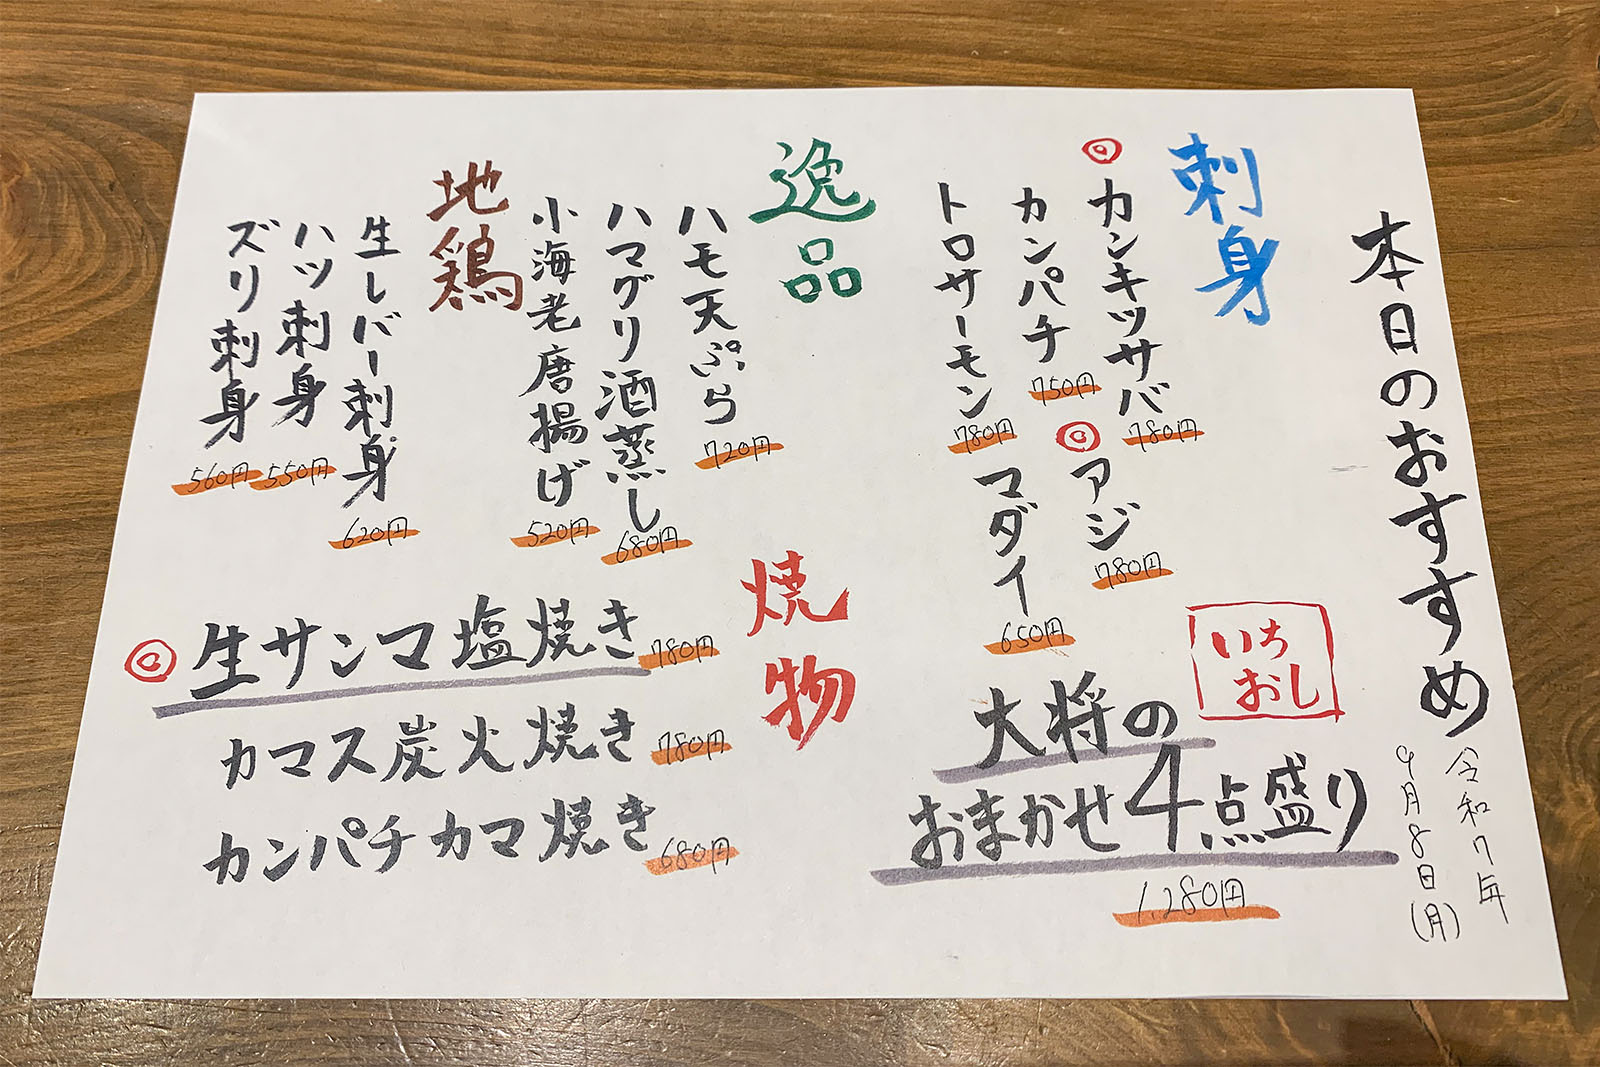 本日のおすすめ
令和7年
9月8日(月)
刺身
カンキツサバ
780円
カンパチ
750円
トロサーモン
780円
アジ
780円
マダイ
650円
いち
おし
大将の
おまかせ4点盛り
1,280円
逸品
ハモ天ぷら
720円
ハマグリ酒蒸し
680円
小海老唐揚げ
520円
地鶏
生レバー刺身
620円
ハツ刺身
550円
ズリ刺身
560円
焼物
生サンマ塩焼き 780円
カマス炭火焼き 780円
カンパチカマ焼き 680円